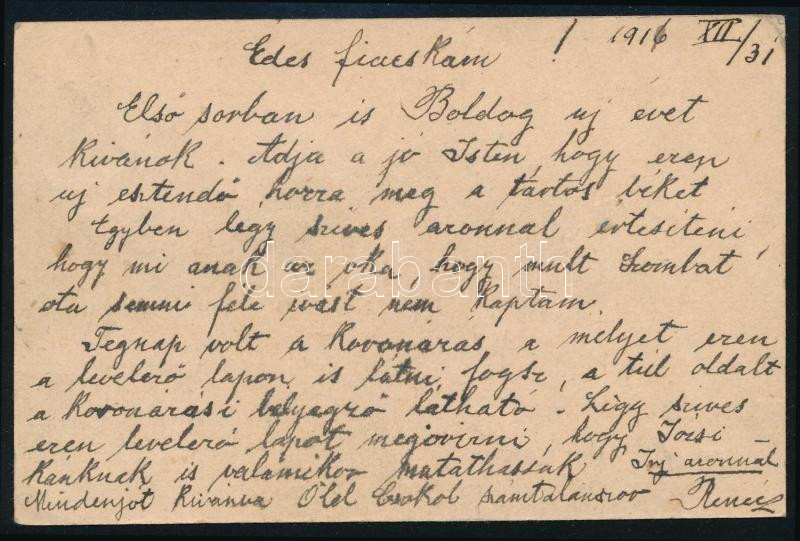 Édes fiacskám ! 1916 XII/31
Első sorban is Boldog uj évet
kivánok. Adja a jó Isten hogy ezen
uj esztendő hozza meg a tartos béket
Egyben légy szives azonnal értesiteni,
hogy mi anak az oka, hogy mult szombat
ota semmi fele irást nem kaptam.
Tegnap volt a Koronázás, a melyet ezen
a levelező lapon is látni fogsz, a tul oldalt
a Koronázási belyegző látható. Légy szives
ezen levelező lapot megőrizni, hogy Józsi-
kanknak is valamikor mutathassuk Irj azonnal
Mindenjot Kivánva Ölel Csokol számtalanszor
darabanth